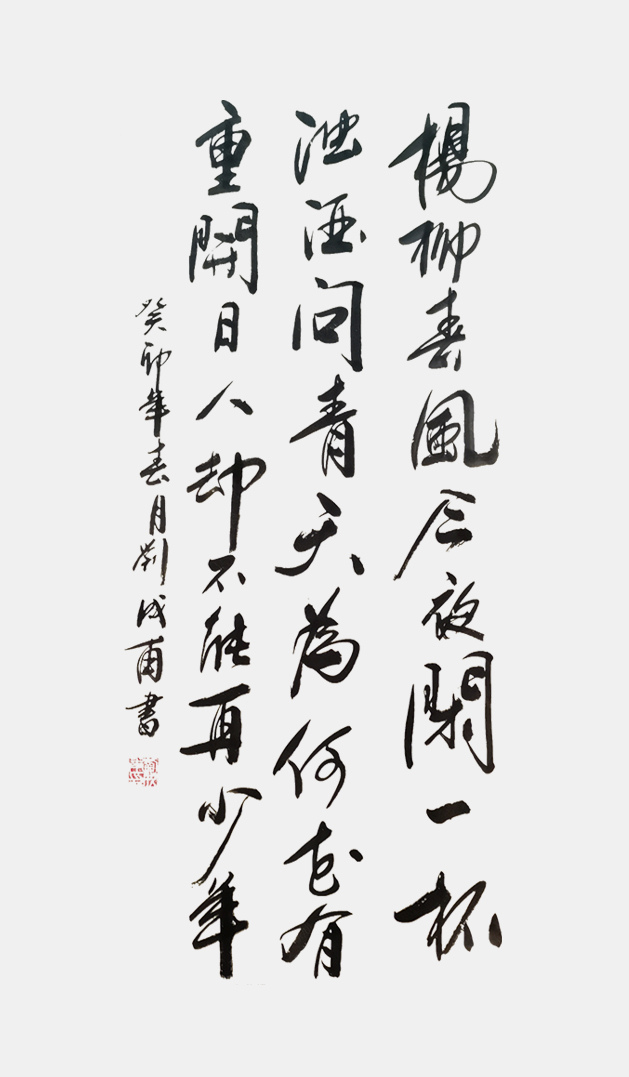 楊柳春風今夜閑一杯
濁酒問青天為何花有
重開日人却不能再少年
癸卯年春月劉成甫書